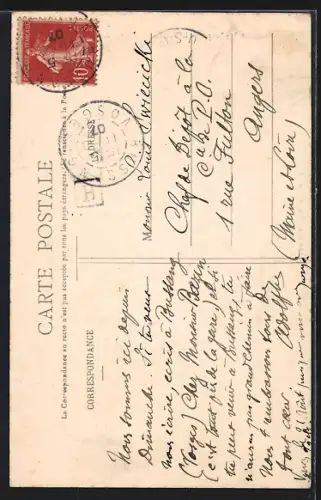 CARTE POSTALE
La Correspondance au recto n'est pas acceptée par tous les pays étrangers. Se renseigner à la Poste
CORRESPONDANCE
ADRESSE
Nous sommes ici depuis
Dimanche. Si tu peux
nous écrire, écris à Bussang
(Vosges) Chez Monsieur
c'est tout près de la gare, et si
tu peux venir à Bussang, tu
n'auras pas grand chemin à faire
Nous t'embrassons tous De
tout cœur Adolphe
Monsieur Louis
Chef de Dépôt à la
Cie P.O.
1 rue Fulton
Angers
(Maine et Loire)
10